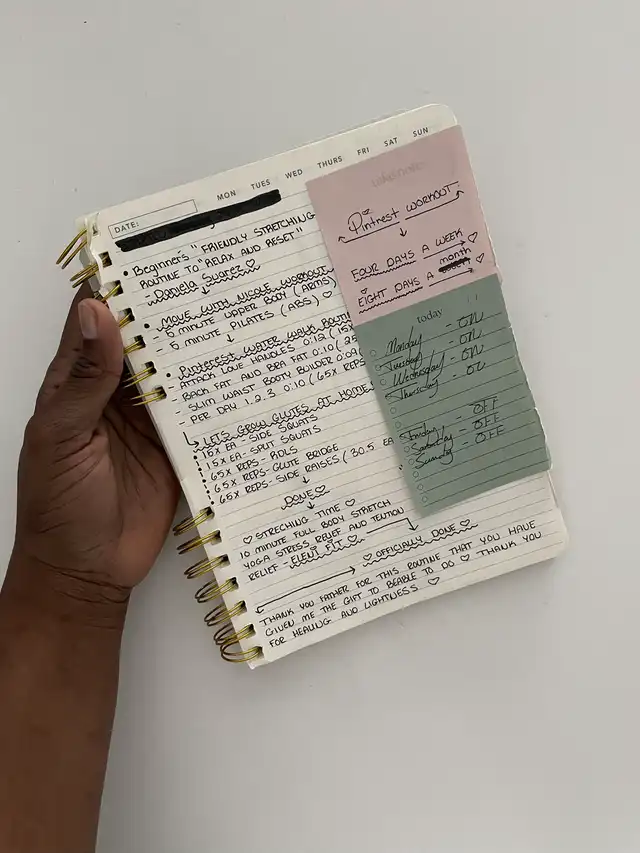 MON TUES WED THURS FRI SAT SUN
DATE:
• Beginner's "FRIENDLY STRETCHING
ROUTINE TO "RELAX AND RESET"
- Daniela Suarez ♡
• MOVE WITH NICOLE WORKOUT
- 5 MINUTE UPPER BODY (ARMS)
- 5 MINUTE PILATES (ABS) ♡
• Pinterest WATER WALK ROUTI
- ATTACK LOVE HANDLES 0:12 (15
- BACK FAT AND BRA FAT 0:10 (25
- SLIM WAIST BOOTY BUILDER 0:09
- PER DAY 1, 2, 3 0:10 (65X REPS
LETS GROW GLUTES AT HOME
15X EA - SIDE SQUATS
15X EA - SPLIT SQUATS
65X REPS - RDLS
65X REPS - GLUTE BRIDGE
65X REPS - SIDE RAISES (30.5 EA
DONE ♡
♡ STRECHING TIME ♡
10 MINUTE FULL BODY STRETCH
YOGA STRESS RELIEF AND
RELIEF -
♡ OFFICIALLY DONE ♡
THANK YOU FATHER FOR THIS ROUTINE THAT YOU HAVE
GIVEN ME THE GIFT TO BEABLE TO DO ♡ THANK YOU
FOR HEALING AND LIGHTNESS ♡
Pintrest WORKOUT:
FOUR DAYS A WEEK ♡
EIGHT DAYS A month ♡
today
Monday - ON
Tuesday - ON
Wednesday - ON
Thursday - ON
Friday - OFF
Saturday - OFF
Sunday - OFF